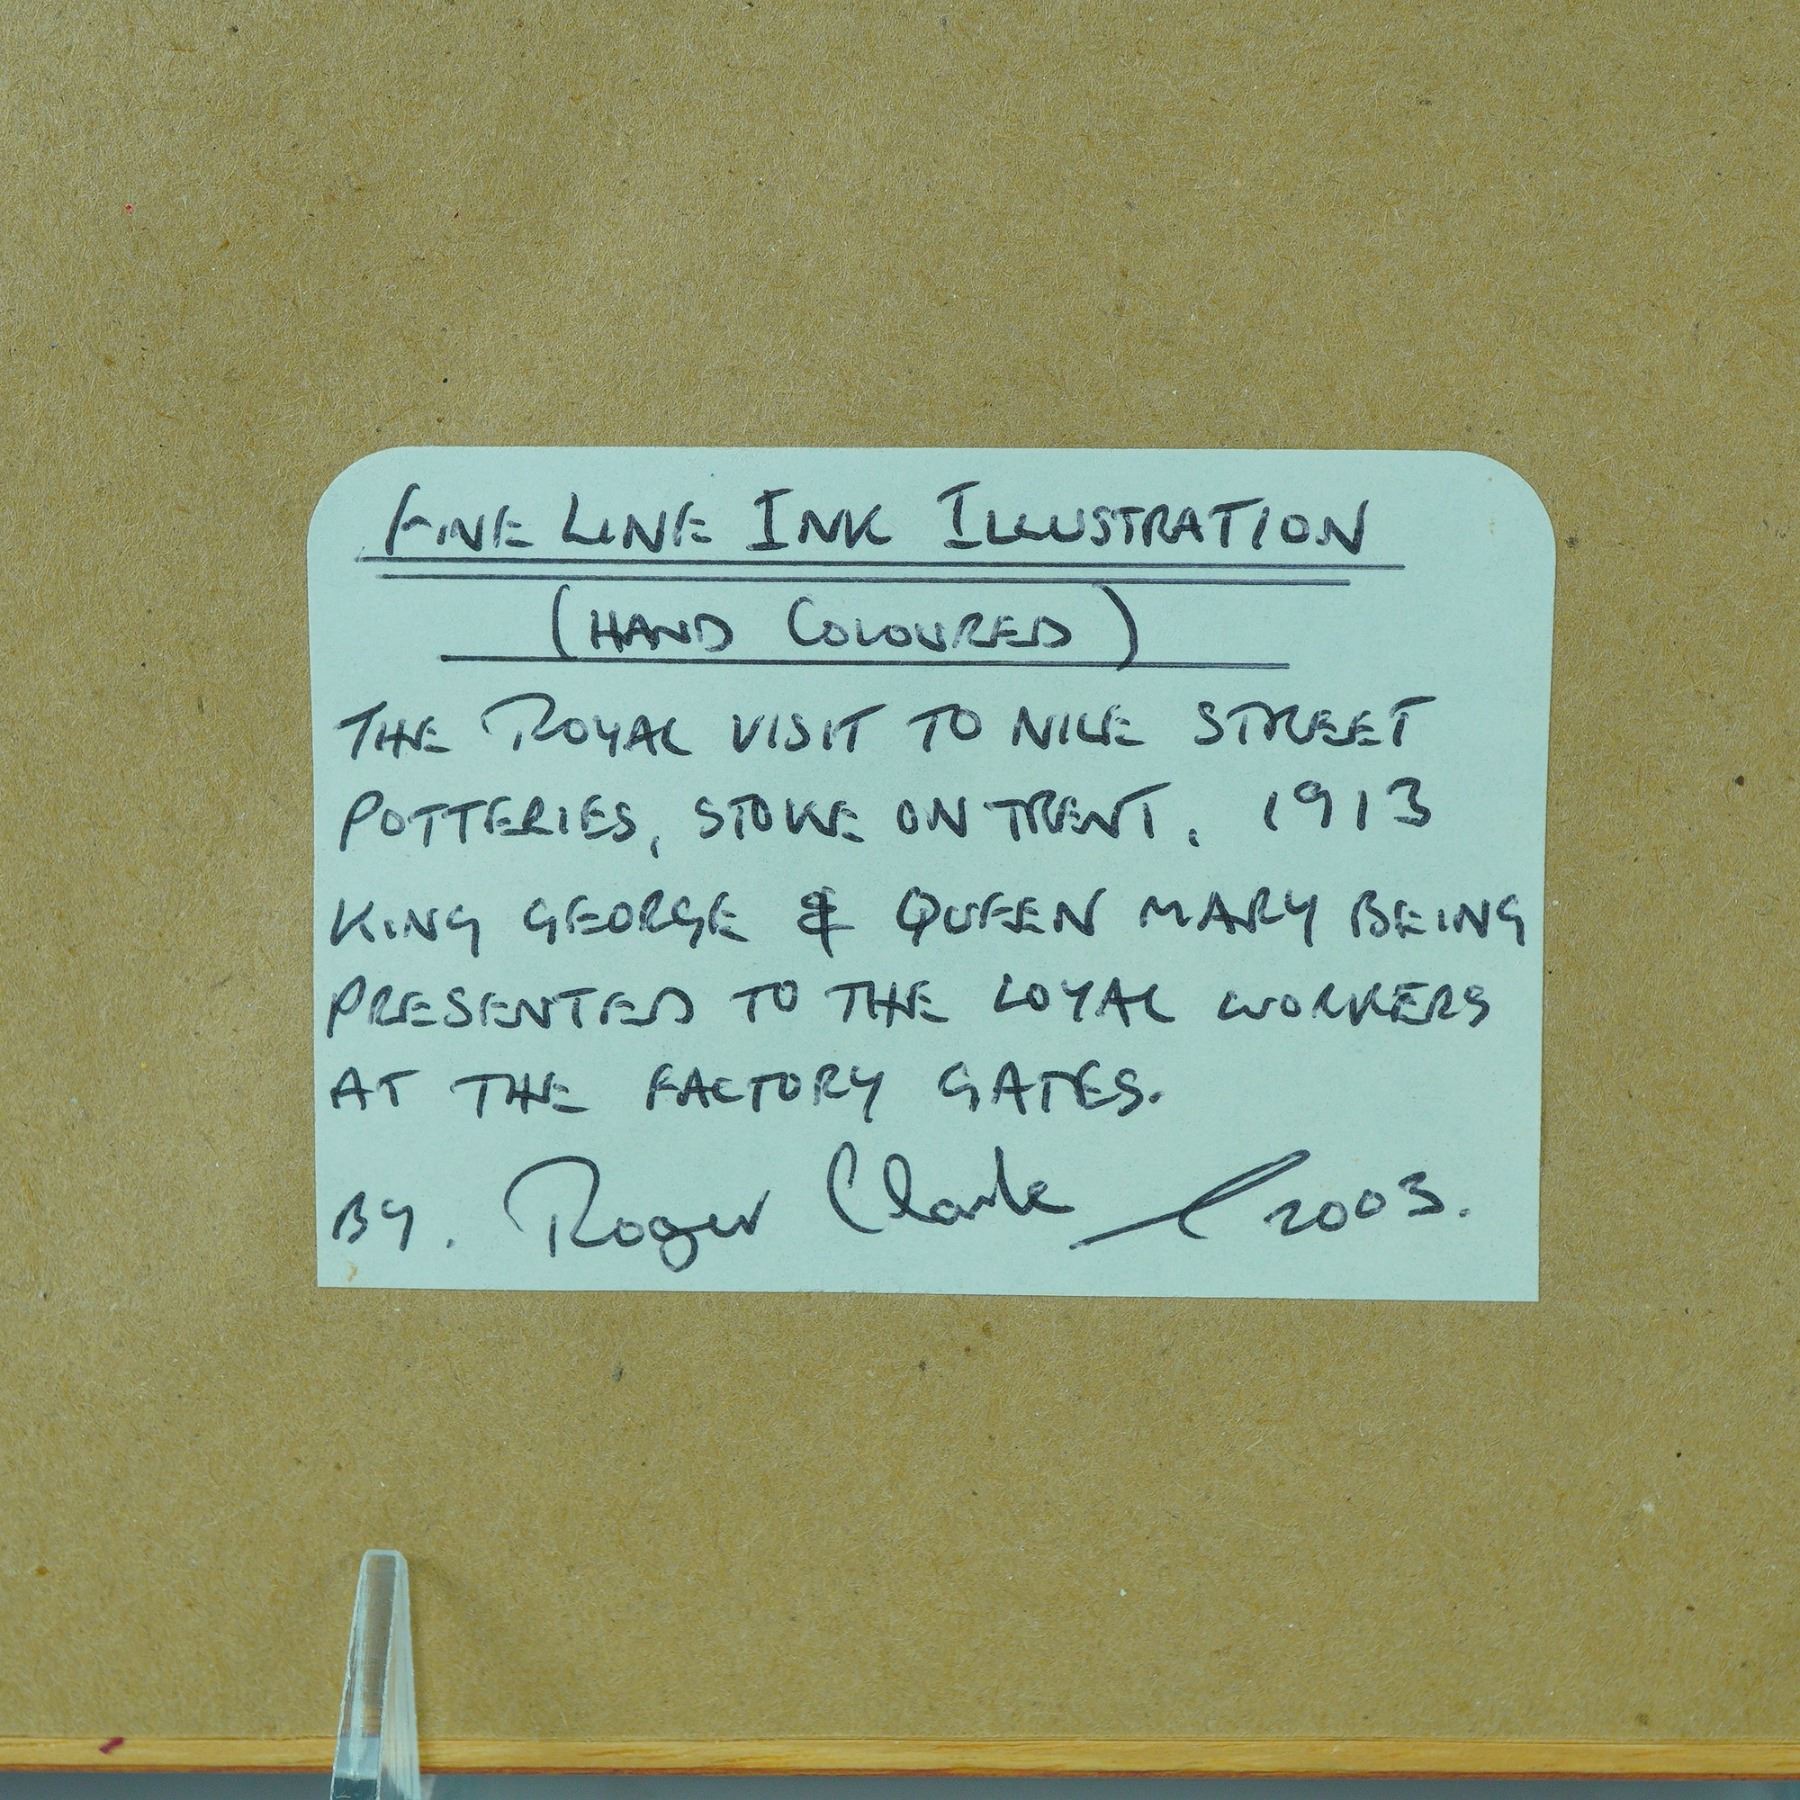 FINE LINE INK ILLUSTRATION
(HAND COLOURED)
THE ROYAL VISIT TO NILE STREET
POTTERIES, STOKE ON TRENT. 1913
KING GEORGE & QUEEN MARY BEING
PRESENTED TO THE LOYAL WORKERS
AT THE FACTORY GATES.
BY. Roger Clark 2003.